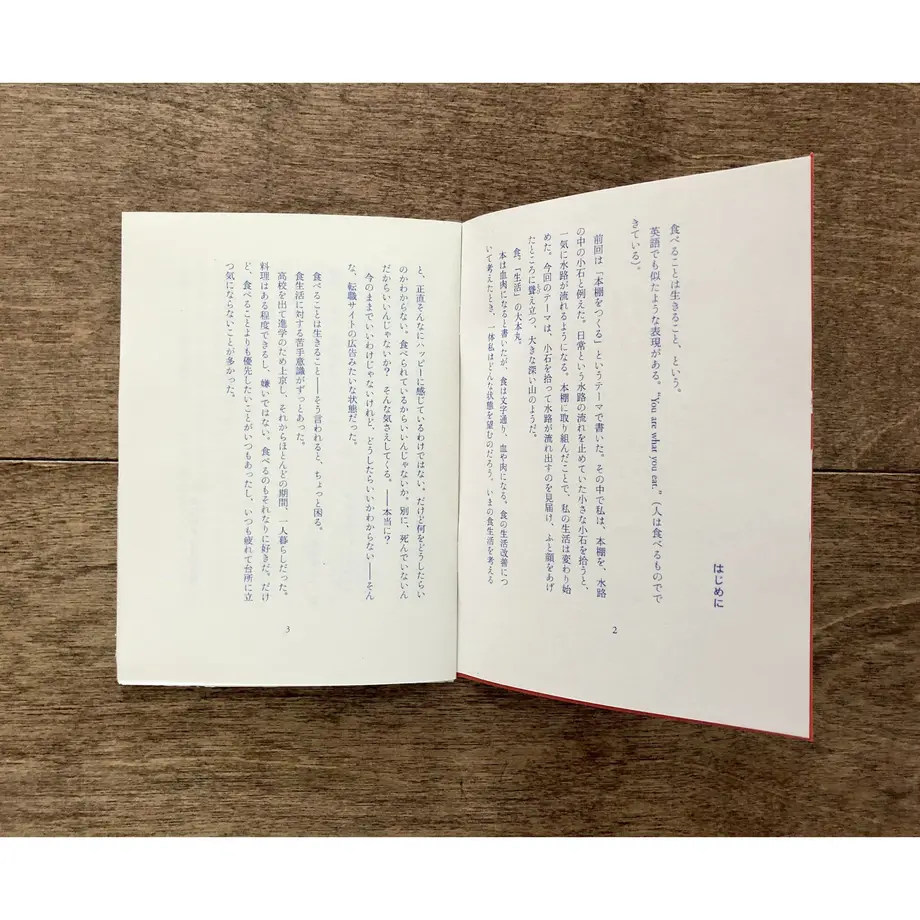 はじめに
食べることは生きること、という。
英語でも似たような表現がある。“You are what you eat.”（人は食べるものでで
きている）。
前回は「本棚をつくる」というテーマで書いた。その中で私は、本棚を、水路
の中の小石と例えた。日常という水路の流れを止めていた小さな小石を拾うと、
一気に水路が流れるようになる。本棚に取り組んだことで、私の生活は変わり始
めた。今回のテーマは、小石を拾って水路が流れ出すのを見届け、ふと顔をあげ
たところに聳え立つ、大きな深い山のようだ。
食。「生活」の大本丸。
本は血肉になると書いたが、食は文字通り、血や肉になる。食の生活改善につ
いて考えたとき、一体私はどんな状態を望むのだろう。いまの食生活を考える
2
と、正直そんなにハッピーに感じているわけではない。だけど何をどうしたらい
のかわからない。食べられているからいいんじゃないか。別に、死んでいないん
だからいいんじゃないか？　そんな気さえしてくる。――本当に？
今のままでいいわけじゃないけれど、どうしたらいいかわからない――そん
な、転職サイトの広告みたいな状態だった。
食べることは生きること――そう言われると、ちょっと困る。
食生活に対する苦手意識がずっとあった。
高校を出て進学のため上京し、それからほとんどの期間、一人暮らしだった。
料理はある程度できるし、嫌いではない。食べるのもそれなりに好きだ。だけ
ど、食べることよりも優先したいことがいつもあったし、いつも疲れて台所に立
つ気にならないことが多かった。
3